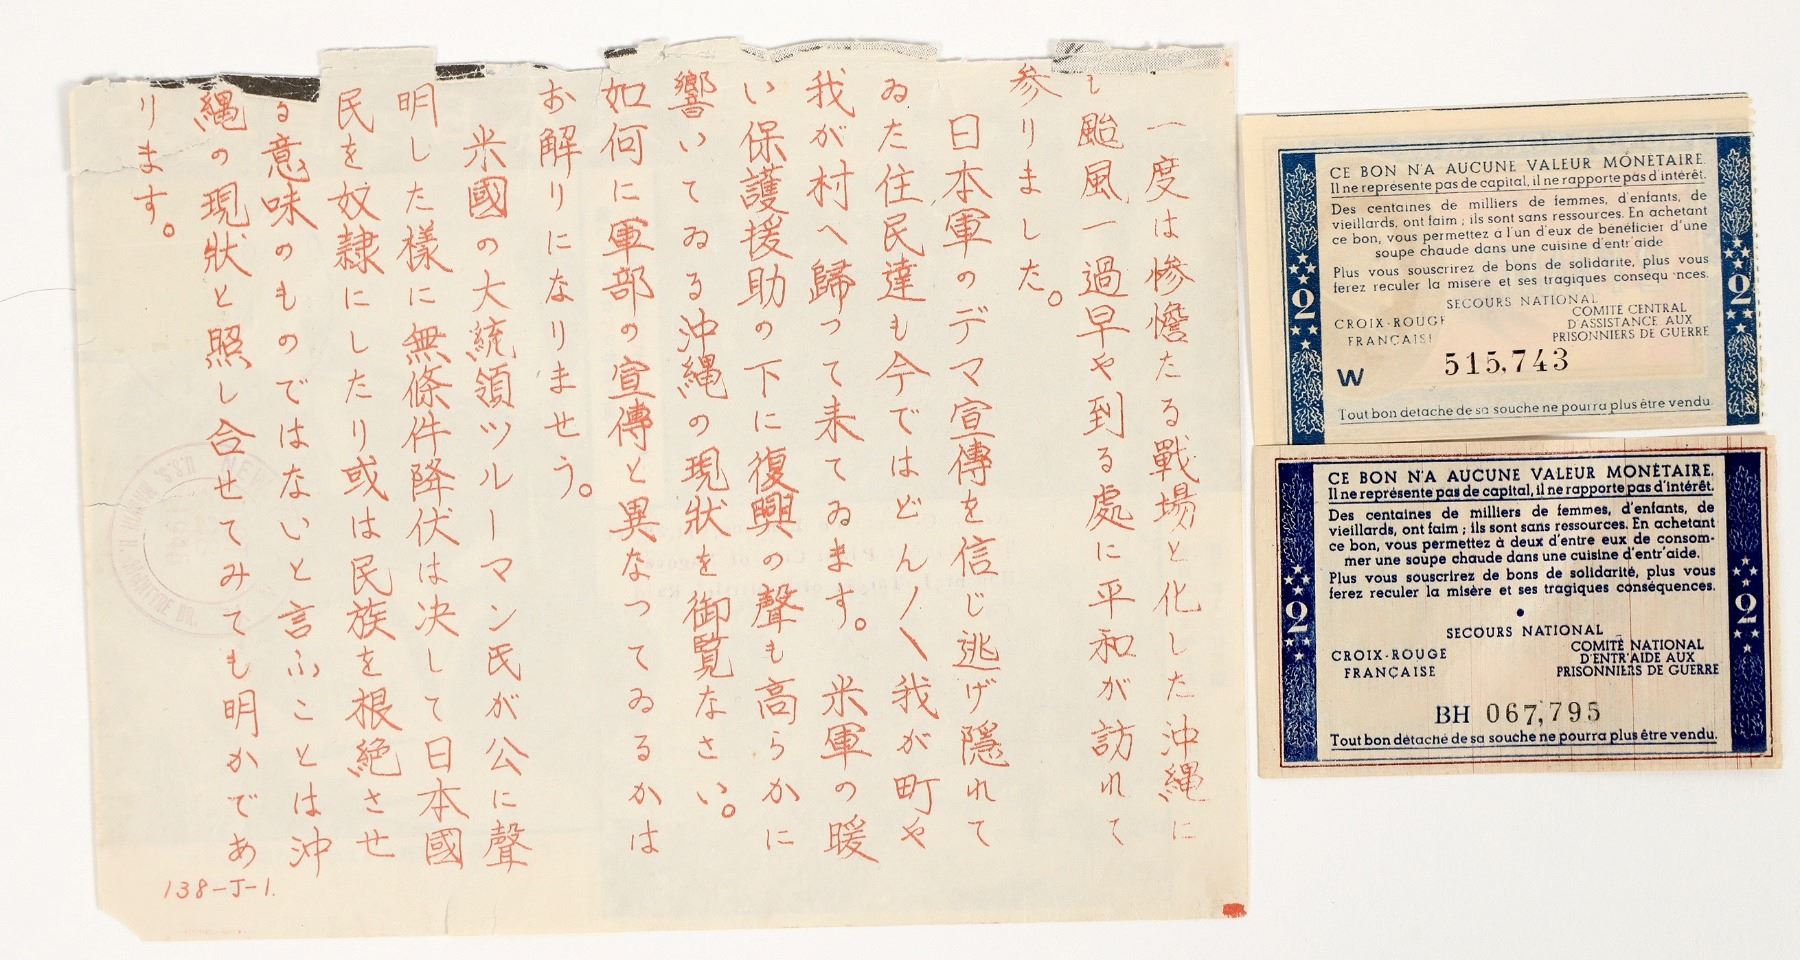 一度は惨憺たる戰場と化した沖縄に
も颱風一過早や到る處に平和が訪れて
参りました。
日本軍のデマ宣傳を信じ逃げ隠れて
ゐた住民達も今ではどん〳〵我が町や
我が村へ歸って来てゐます。米軍の暖
い保護援助の下に復興の聲も高らかに
響いてゐる沖縄の現狀を御覧なさい。
如何に軍部の宣傳と異なってゐるかは
お解りになりませう。
米國の大統領ツルーマン氏が公に聲
明した様に無條件降伏は決して日本國
民を奴隷にしたり或は民族を根絶させ
る意味のものではないと言ふことは沖
縄の現狀と照し合せてみても明かであ
ります。
138-J-1.
CE BON N'A AUCUNE VALEUR MONÉTAIRE.
Il ne représente pas de capital, il ne rapporte pas d'intérêt.
Des centaines de milliers de femmes, d'enfants, de
vieillards, ont faim ; ils sont sans ressources. En achetant
ce bon, vous permettez a l'un d'eux de bénéficier d'une
soupe chaude dans une cuisine d'entr'aide
Plus vous souscrirez de bons de solidarite, plus vous
ferez reculer la misère et ses tragiques conséqu nces.
SECOURS NATIONAL
CROIX-ROUGE
FRANÇAISE
COMITÉ CENTRAL
D'ASSISTANCE AUX
PRISONNIERS DE GUERRE
2
2
W
515,743
Tout bon détaché de sa souche ne pourra plus être vendu.
CE BON N'A AUCUNE VALEUR MONÉTAIRE.
Il ne représente pas de capital, il ne rapporte pas d'intérêt.
Des centaines de milliers de femmes, d'enfants, de
vieillards, ont faim ; ils sont sans ressources. En achetant
ce bon, vous permettez à deux d'entre eux de consom-
mer une soupe chaude dans une cuisine d'entr'aide.
Plus vous souscrirez de bons de solidarité, plus vous
ferez reculer la misère et ses tragiques conséquences.
SECOURS NATIONAL
CROIX-ROUGE
FRANÇAISE
COMITÉ NATIONAL
D'ENTR'AIDE AUX
PRISONNIERS DE GUERRE
2
2
BH 067,795
Tout bon détaché de sa souche ne pourra plus être vendu.